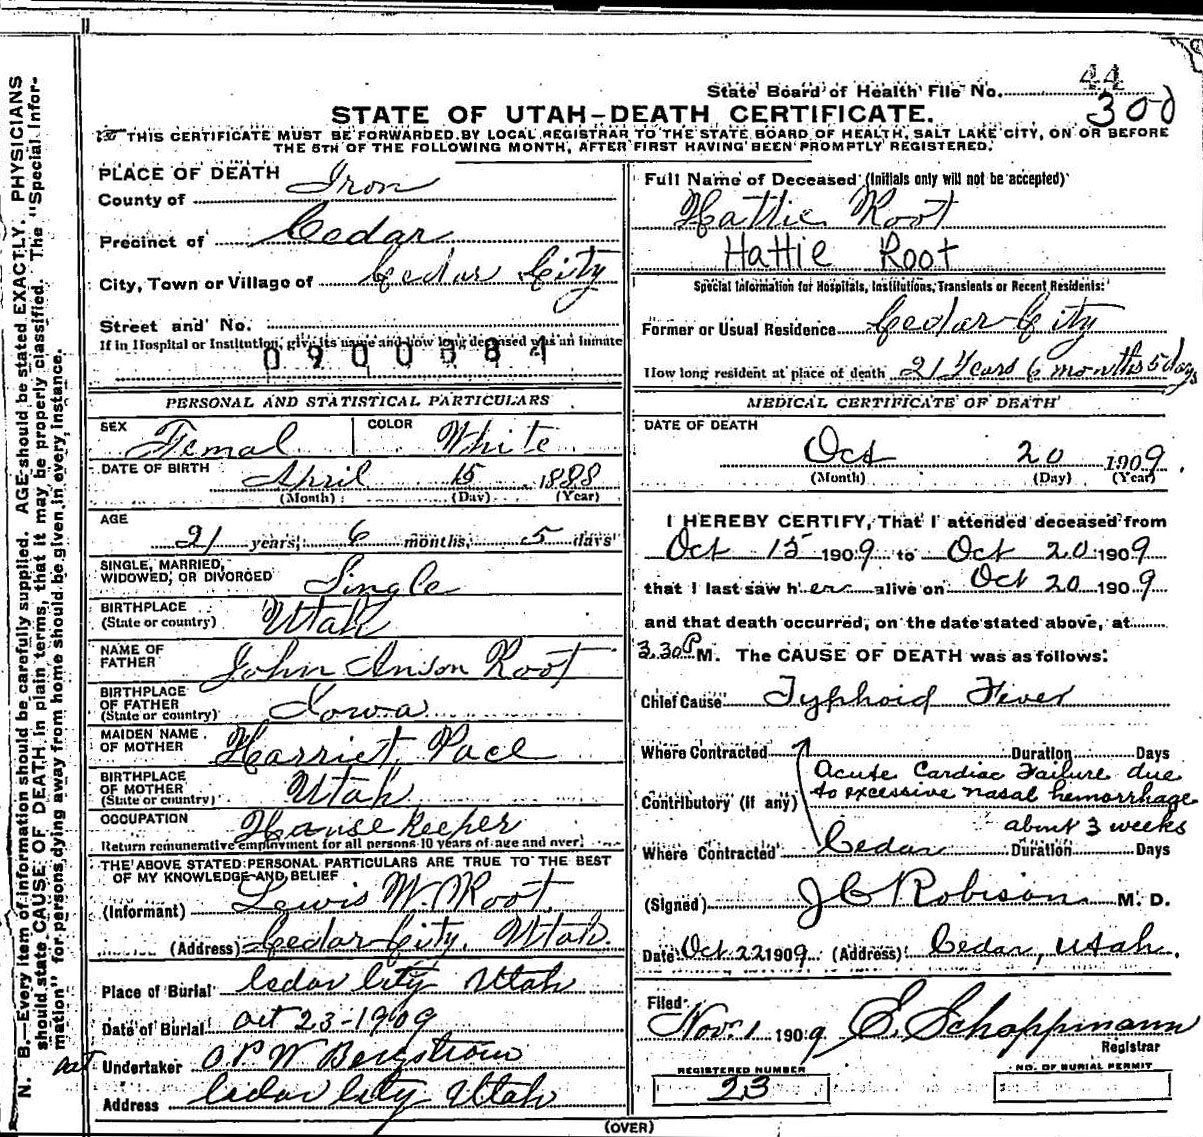 State Board of Health File No. 44
300
STATE OF UTAH-DEATH CERTIFICATE.
THIS CERTIFICATE MUST BE FORWARDED BY LOCAL REGISTRAR TO THE STATE BOARD OF HEALTH, SALT LAKE CITY, ON OR BEFORE
THE 5TH OF THE FOLLOWING MONTH, AFTER FIRST HAVING BEEN PROMPTLY REGISTERED.
N. B.—Every item of information should be carefully supplied. AGE should be stated EXACTLY. PHYSICIANS
should state CAUSE OF DEATH in plain terms, that it may be properly classified. The "Special Infor-
mation" for persons dying away from home should be given in every instance.
PLACE OF DEATH
County of Iron
Precinct of Cedar
City, Town or Village of Cedar City
Street and No.
If in Hospital or Institution, give its name and how long deceased was an inmate
0900384
PERSONAL AND STATISTICAL PARTICULARS
SEX Femal COLOR White
DATE OF BIRTH April 15 1888
(Month) (Day) (Year)
AGE
21 years, 6 months, 5 days
SINGLE, MARRIED,
WIDOWED, OR DIVORCED Single
BIRTHPLACE
(State or country) Utah
NAME OF
FATHER John Anson Root
BIRTHPLACE
OF FATHER
(State or country) Iowa
MAIDEN NAME
OF MOTHER Harriet Pace
BIRTHPLACE
OF MOTHER
(State or country) Utah
OCCUPATION Housekeeper
Return remunerative employment for all persons 10 years of age and over.
THE ABOVE STATED PERSONAL PARTICULARS ARE TRUE TO THE BEST
OF MY KNOWLEDGE AND BELIEF
(Informant) Lewis W. Root
(Address) Cedar City, Utah
Place of Burial Cedar City Utah
Date of Burial Oct 23-1909
Undertaker O.P.W Bergstrom
Address Cedar City Utah
Full Name of Deceased (Initials only will not be accepted)
Hattie Root
Hattie Root
Special Information for Hospitals, Institutions, Transients or Recent Residents:
Former or Usual Residence Cedar City
How long resident at place of death 21 Years 6 months 5 days
MEDICAL CERTIFICATE OF DEATH
DATE OF DEATH
Oct 20 1909.
(Month) (Day) (Year)
I HEREBY CERTIFY, That I attended deceased from
Oct 15 1909 to Oct 20 1909
that I last saw her alive on Oct 20 1909
and that death occurred, on the date stated above, at
3.30 P M. The CAUSE OF DEATH was as follows:
Chief Cause Typhoid Fever
Where Contracted Duration Days
Acute Cardiac Failure due
Contributory (if any) to excessive nasal hemorrhage
about 3 weeks
Where Contracted Cedar Duration Days
(Signed) J C Robison M. D.
Date Oct 22 1909 (Address) Cedar, Utah.
Filed
Nov. 1 1909 E. Schoppmann
Registrar
REGISTERED NUMBER
23
NO. OF BURIAL PERMIT
(OVER)